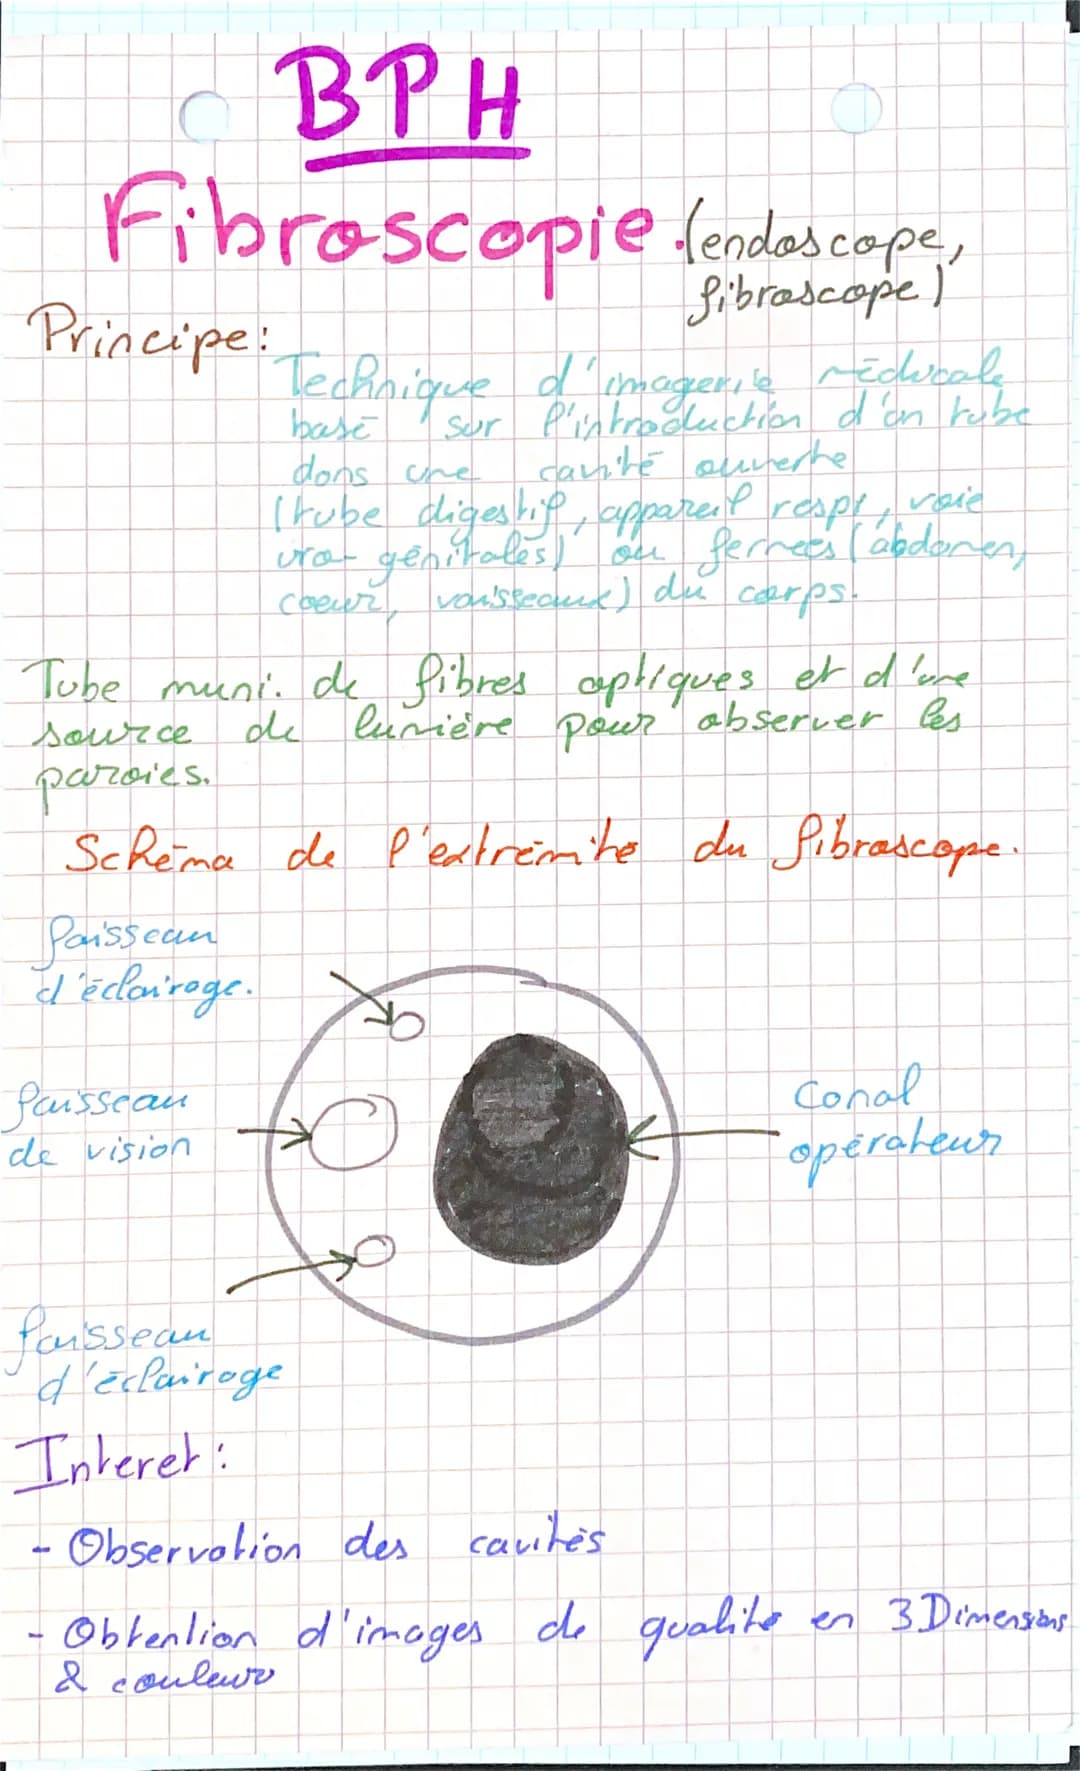 BPH
Fibroscopie (endoscope,
fibroscope)
Principe:
Technique d'imagerie médicale
basé sur l'introduction d'un tube
dans une cavité ouverte
(tube digestif, appareil respi, voie
uro-génitales) ou fermées (abdomen,
coeur, vaisseaux) du corps.
Tube muni de fibres optiques et d'une
source de lumière pour observer les
paroies.
Schéma de l'extrémité du fibroscope.
faisseau
d'éclairage.
faisseau
de vision
Canal
opérateur
faisseau
d'éclairage
Interet:
- Observation des cavités
- Obtention d'images de qualité en 3Dimensions
& couleur